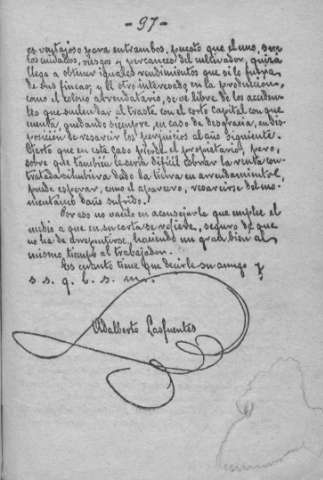 - 37 -
es ventajoso para entrambos, puesto que el uno, sin
los cuidados, riesgos y percances del cultivador, quizá
llega a obtener iguales rendimientos que si lo fuera
de sus fincas; y el otro interesado en la producción,
como el colono arrendatario, se ve libre de los acciden-
tes que suelen dar al traste con el corto capital con que
cuenta, quedando siempre, en caso de desgracia, en dis-
posición de resarcir los perjuicios al año siguiente.
Cierto que en este caso pierde el propietario, pero,
sobre que también le sería difícil cobrar la renta con-
tratada si hubiera dado la tierra en arrendamiento,
puede esperar, como el aparcero, resarcirse del mo-
mentáneo daño sufrido.
Por eso no vacilo en aconsejarle que emplee el
medio a que en su carta se refiere, seguro de que
no ha de arrepentirse, haciendo un gran bien al
mismo tiempo al trabajador.
Es cuanto tiene que decirle su amigo y
s. s. q. b. s. m.
Adalberto Lasfuentes